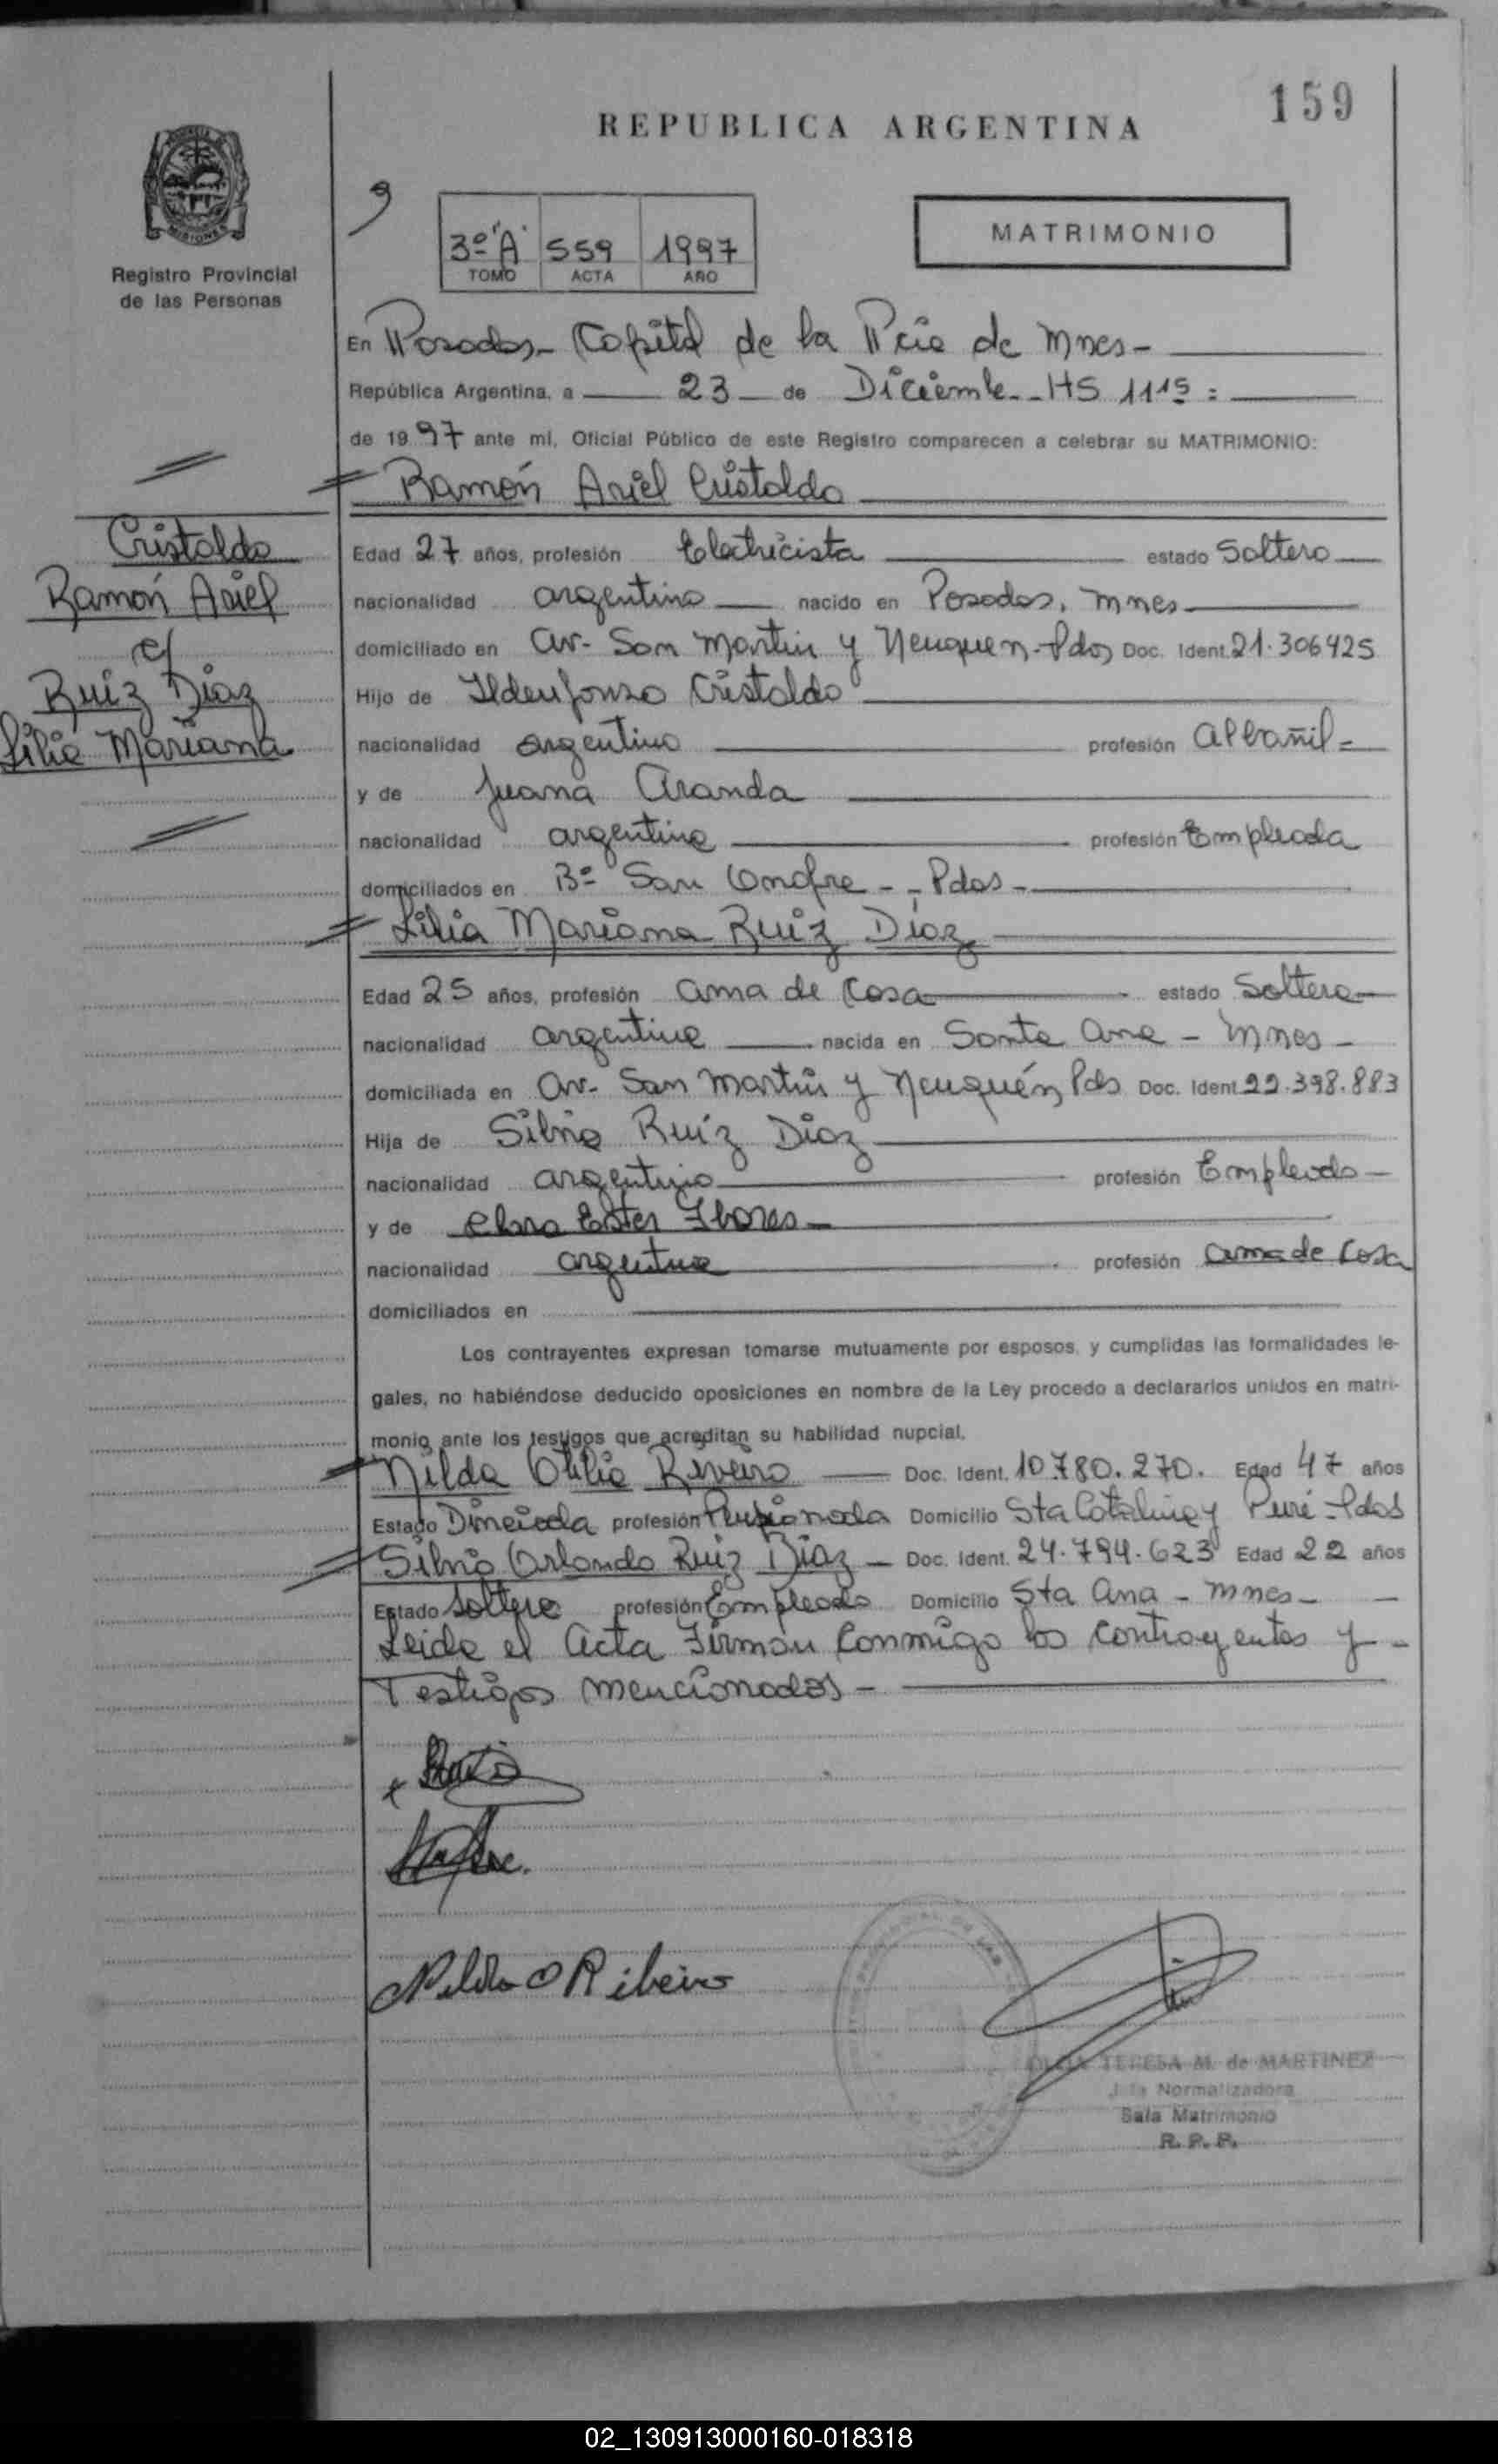 159
REPUBLICA ARGENTINA
MISIONES
Registro Provincial
de las Personas
9
3º "A" 559 1997
TOMO ACTA AÑO
MATRIMONIO
En Posadas - Capital de la Pcia de Mnes -
República Argentina, a 23 de Diciembre - HS 11 15 =
de 1997 ante mí, Oficial Público de este Registro comparecen a celebrar su MATRIMONIO:
Ramón Ariel Cristaldo
Cristaldo
Ramón Ariel
c/
Ruiz Diaz
Lilia Mariana
Edad 27 años, profesión Electricista estado Soltero
nacionalidad argentino nacido en Posadas, Mnes
domiciliado en av. San Martin y Neuquen - Pdas Doc. Ident. 21.306425
Hijo de Ildenfonso Cristaldo
nacionalidad argentino profesión albañil =
y de Juana Aranda
nacionalidad argentina profesión Empleada
domiciliados en Bº San Onofre - - Pdas -
Lilia Mariana Ruiz Díaz
Edad 25 años, profesión ama de casa estado Soltera
nacionalidad argentina nacida en Santa Ana - Mnes -
domiciliada en av. San Martin y Neuquén Pds Doc. Ident. 22.398.883
Hija de Silvio Ruíz Diaz
nacionalidad argentino profesión Empleado -
y de Clara Ester
nacionalidad argentina profesión ama de casa
domiciliados en
Los contrayentes expresan tomarse mutuamente por esposos, y cumplidas las formalidades le-
gales, no habiéndose deducido oposiciones en nombre de la Ley procedo a declararlos unidos en matri-
monio ante los testigos que acreditan su habilidad nupcial.
Nilda Otilia Riveiro Doc. Ident. 10.780.270. Edad 47 años
Estado profesión Pensionada Domicilio Sta Catalina y - Pdas
Silvio Orlando Ruiz Diaz - Doc. Ident. 24.794.623 Edad 22 años
Estado Soltero profesión Empleado Domicilio Sta Ana - Mnes -
Leida el acta Firman Conmigo los contrayentes y -
Testigos mencionados -
Nilda O Ribeiro
TERESA M. de MARTINEZ
Normalizadora
Sala Matrimonio
R. P. P.
02_130913000160-018318